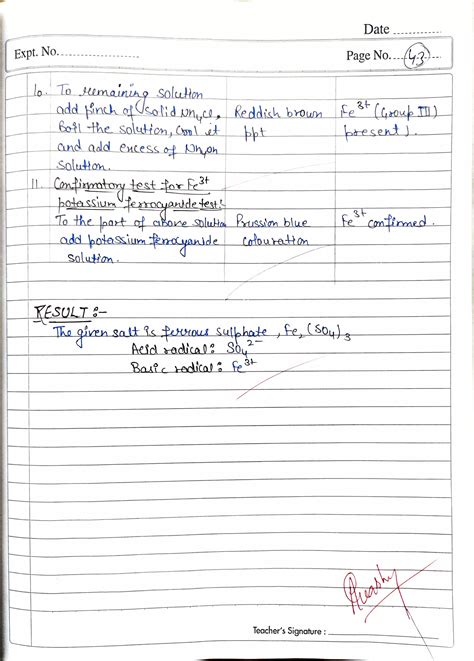 Date
Expt. No.
Page No. 43
10. To remaining solution
add pinch of solid NH4Cl, Reddish brown Fe3+ (Group III)
Boil the solution, cool it ppt present.
and add excess of NH4OH
solution.
11. Confirmatory test for Fe3+
potassium ferrocyanide test:
To the part of above solution Prussion blue Fe3+ confirmed.
add potassium ferrocyanide colouration
solution.
RESULT :-
The given salt is ferrous sulphate, Fe2(SO4)3
Acid radical: SO4 2-
Basic radical: Fe3+
Teacher's Signature :